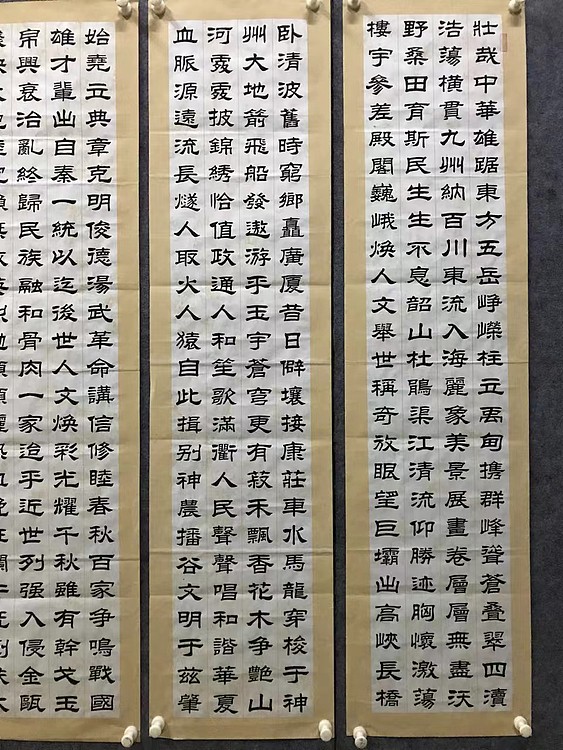 壯哉中華雄踞東方五岳崢嶸柱立禹甸携群峰聳蒼疊翠四瀆
浩蕩橫貫九州納百川東流入海麗象美景展畫卷層層無盡沃
野桑田育斯民生生不息韶山杜鵑渠江清流仰勝迹胸懷激蕩
樓宇參差殿閣巍峨焕人文舉世稱奇放眼望巨壩出高峽長橋
卧清波舊時窮鄉矗廣厦昔日僻壤接康莊車水馬龍穿梭于神
州大地箭飛船發遨游乎玉宇蒼穹更有菽禾飄香花木争艷山
河處處披錦綉恰值政通人和笙歌滿衢人民聲聲唱和諧華夏
血脈源遠流長燧人取火人猿自此揖别神農播谷文明于兹肇
始堯立典章克明俊德湯武革命講信修睦春秋百家争鳴戰國
雄才輩出自秦一統以迄後世人文焕彩光耀千秋雖有幹戈玉
帛興衰治亂終歸民族融和骨肉一家迨乎近世列强入侵金甌